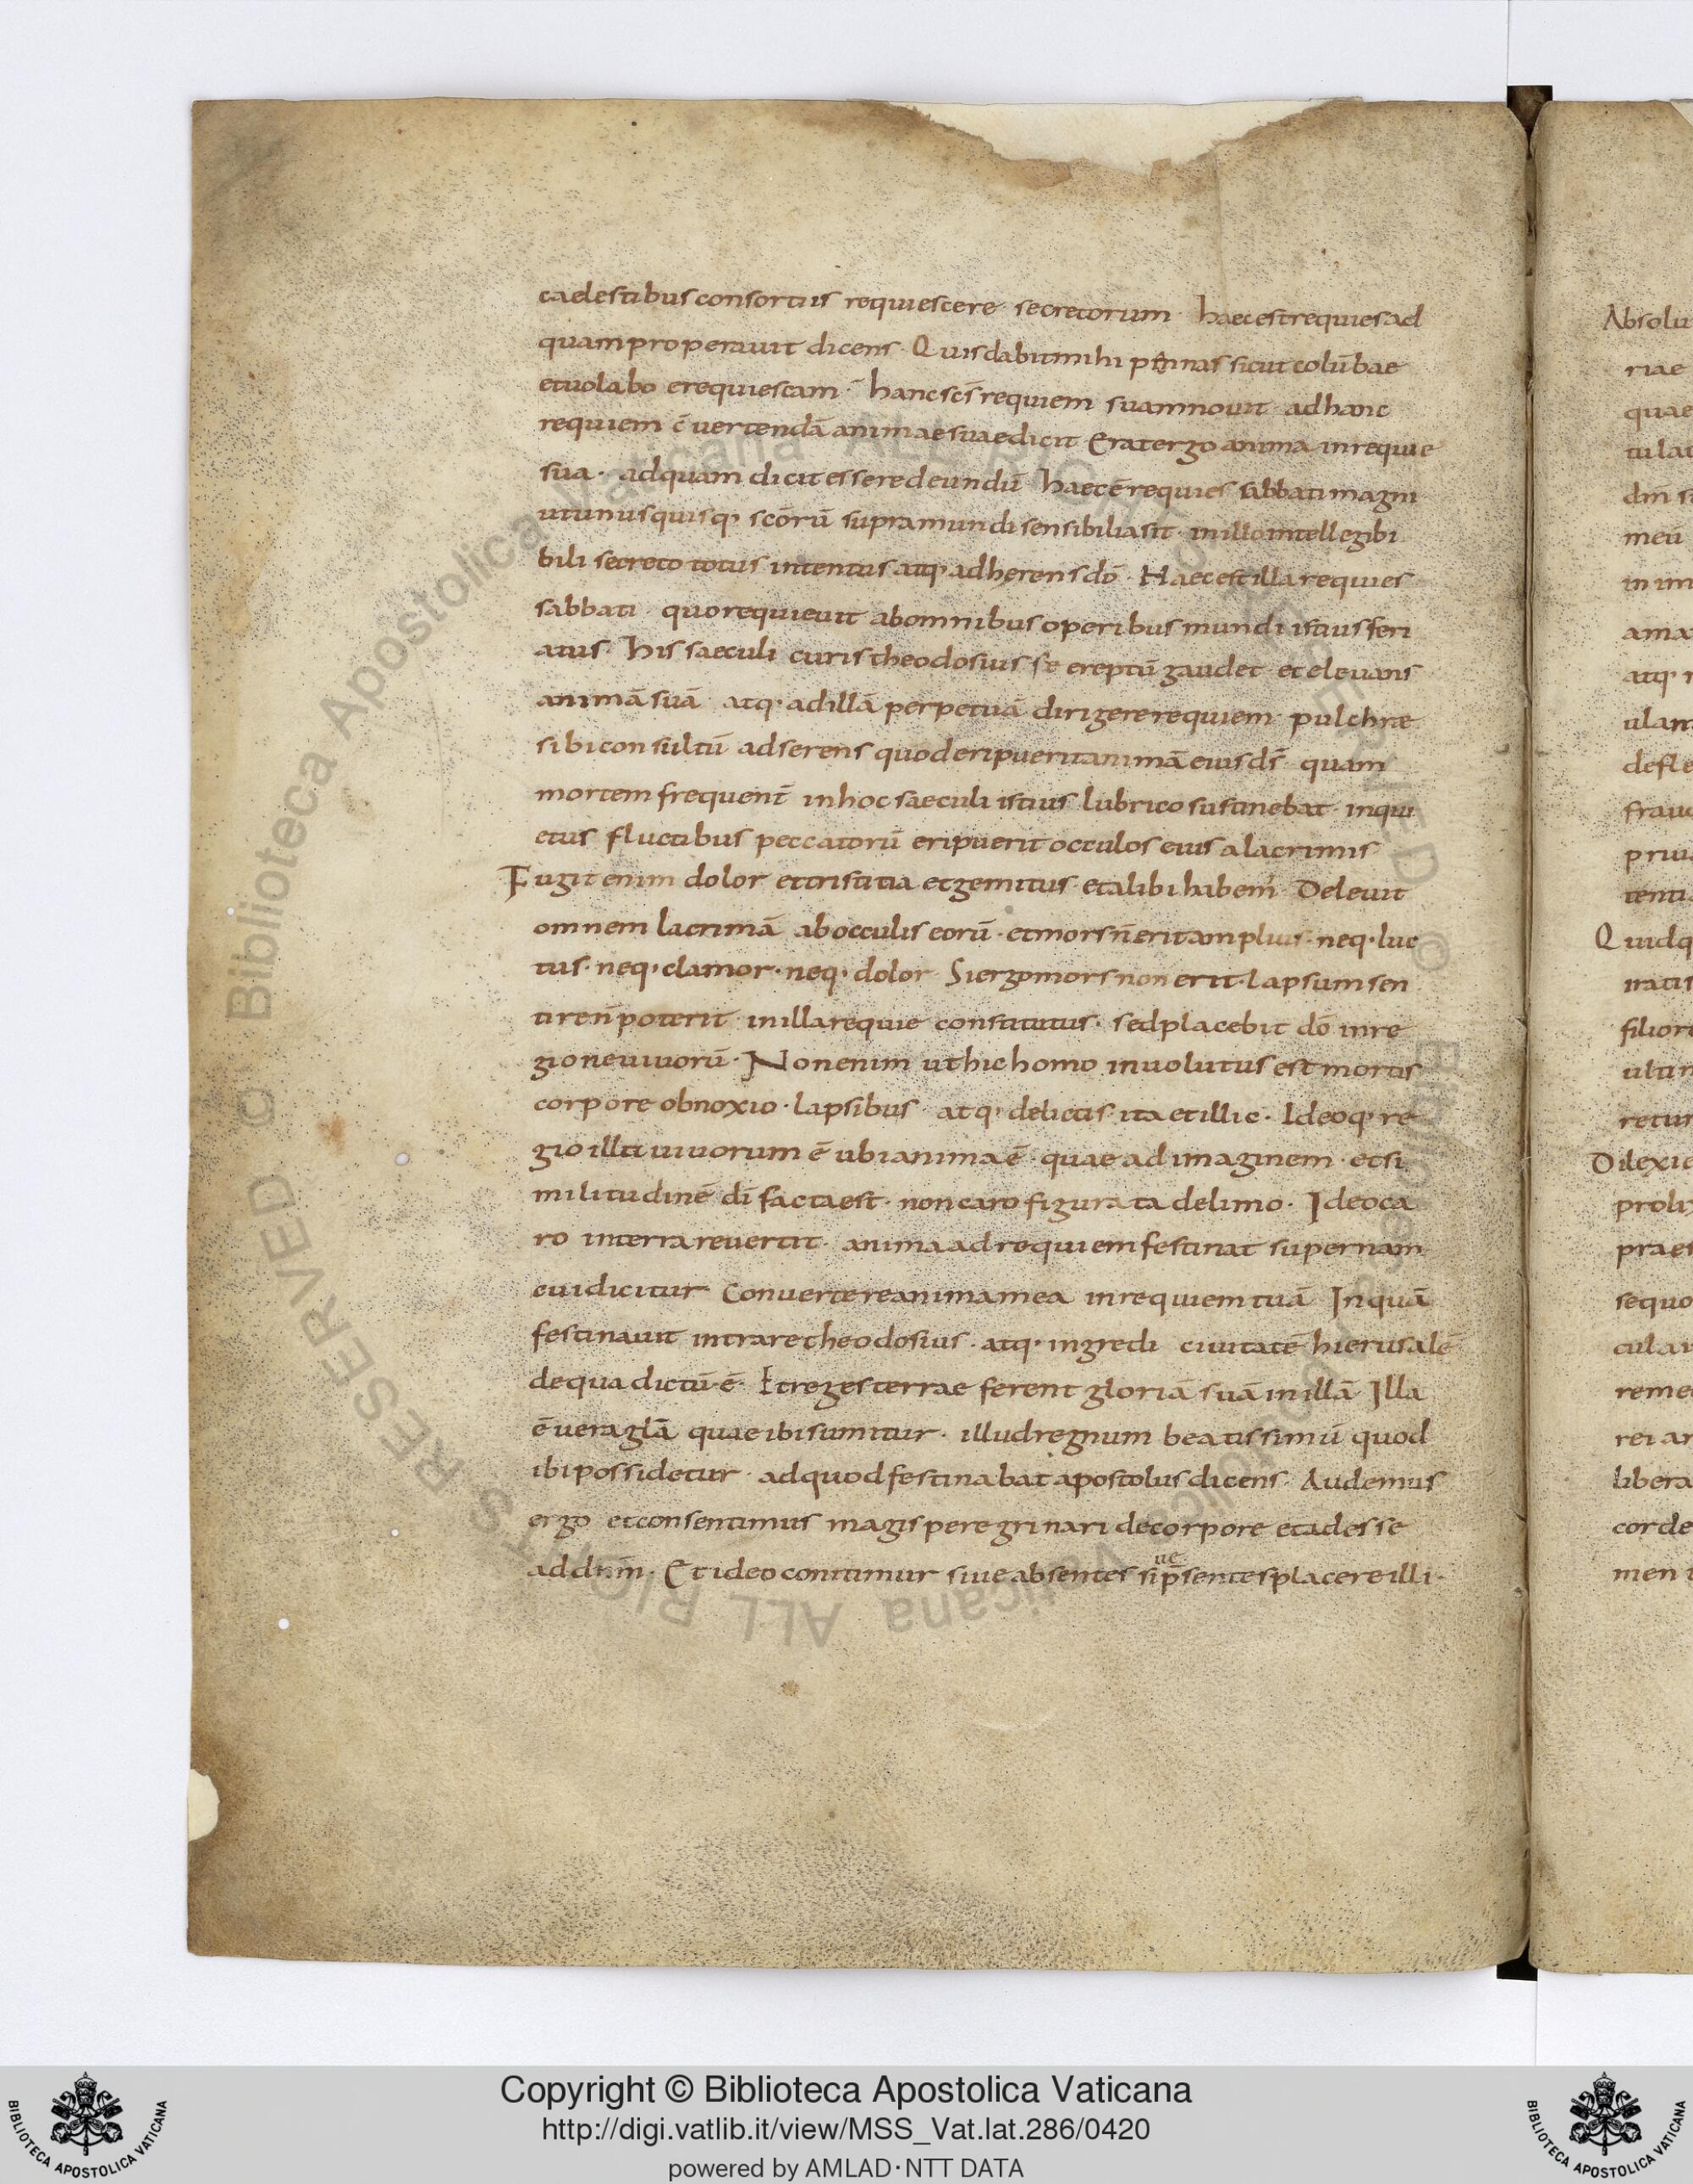 caelestibus consortiis requiescere secretorum. haec est requies ad
quam properauit dicens. Quis dabit mihi pennas sicut colūbae
et uolabo e requiescam. hanc scs̄ requiem suam nouit. ad hanc
requiem c̄uertendā animae suae dicit Erat ergo anima in requie
sua. ad quam dicit esse redeundū haec ē requies sabbati magni
ut unusquisq; scōrū supra mundi sensibilia sit. in illo intellegibi
bili secreto totus intentus atq; adherens dō. Haec est illa requies
sabbati. quo requieuit ab omnibus operibus mundi istius feri
atus. his saeculi curis theodosius se ereptū gaudet. et eleuans
animā suā atq; ad illā perpetuā dirigere requiem. pulchrae
sibi consultū adserens quod eripuerit animā eius ds̄. quam
mortem frequent̄ in hoc saeculi istius lubrico sustinebat. inqui
etus fluctibus peccatorū eripuerit occulos eius a lacrimis
Fugit enim dolor et tristitia et gemitus. et alibi habem' Deleuit
omnem lacrimā ab occulis eorū. et mors n̄ erit amplius. neq; luc
tus. neq; clamor. neq; dolor. Si ergo mors non erit. lapsum sen
tire n̄ poterit in illa requie constitutus. sed placebit dō in re
gione uiuorū. Non enim ut hic homo inuolutus est mortis
corpore obnoxio. lapsibus atq; delictis ita et illic. Ideoq; re
gio illa uiuorum ē ubi anima ē. quae ad imaginem. et si
militudinē dī facta est. non caro figurata de limo. Ideo ca
ro in terra reuertit. anima ad requiem festinat supernam
cui dicitur Conuertere anima mea in requiem tuā In quā
festinauit intrare theodosius. atq; ingredi ciuitatē hierusalē
de qua dictū ē. Et reges terrae ferent gloriā suā in illā Illa
ē uera glā quae ibi sumitur. illud regnum beatissimū quod
ibi possidetur. ad quod festinabat apostolus dicens. Audemus
ergo et consentimus magis peregrinari de corpore et adesse
ad dnm̄. Et ideo conitimur siue absentes siue p̄sentes placere illi.
Absolu
riae
quae
tu lau
dm̄ s
meū
in im
ama
atq; r
ulam
defle
frau
priu
tenti
Quid q
natis
filior
ultin
retur
Dilexi
proli
praes
sequo
cular
reme
rei ar
libera
corde
men t
Copyright © Biblioteca Apostolica Vaticana
http://digi.vatlib.it/view/MSS_Vat.lat.286/0420
powered by AMLAD·NTT DATA
BIBLIOTECA APOSTOLICA VATICANA
BIBLIOTECA APOSTOLICA VATICANA